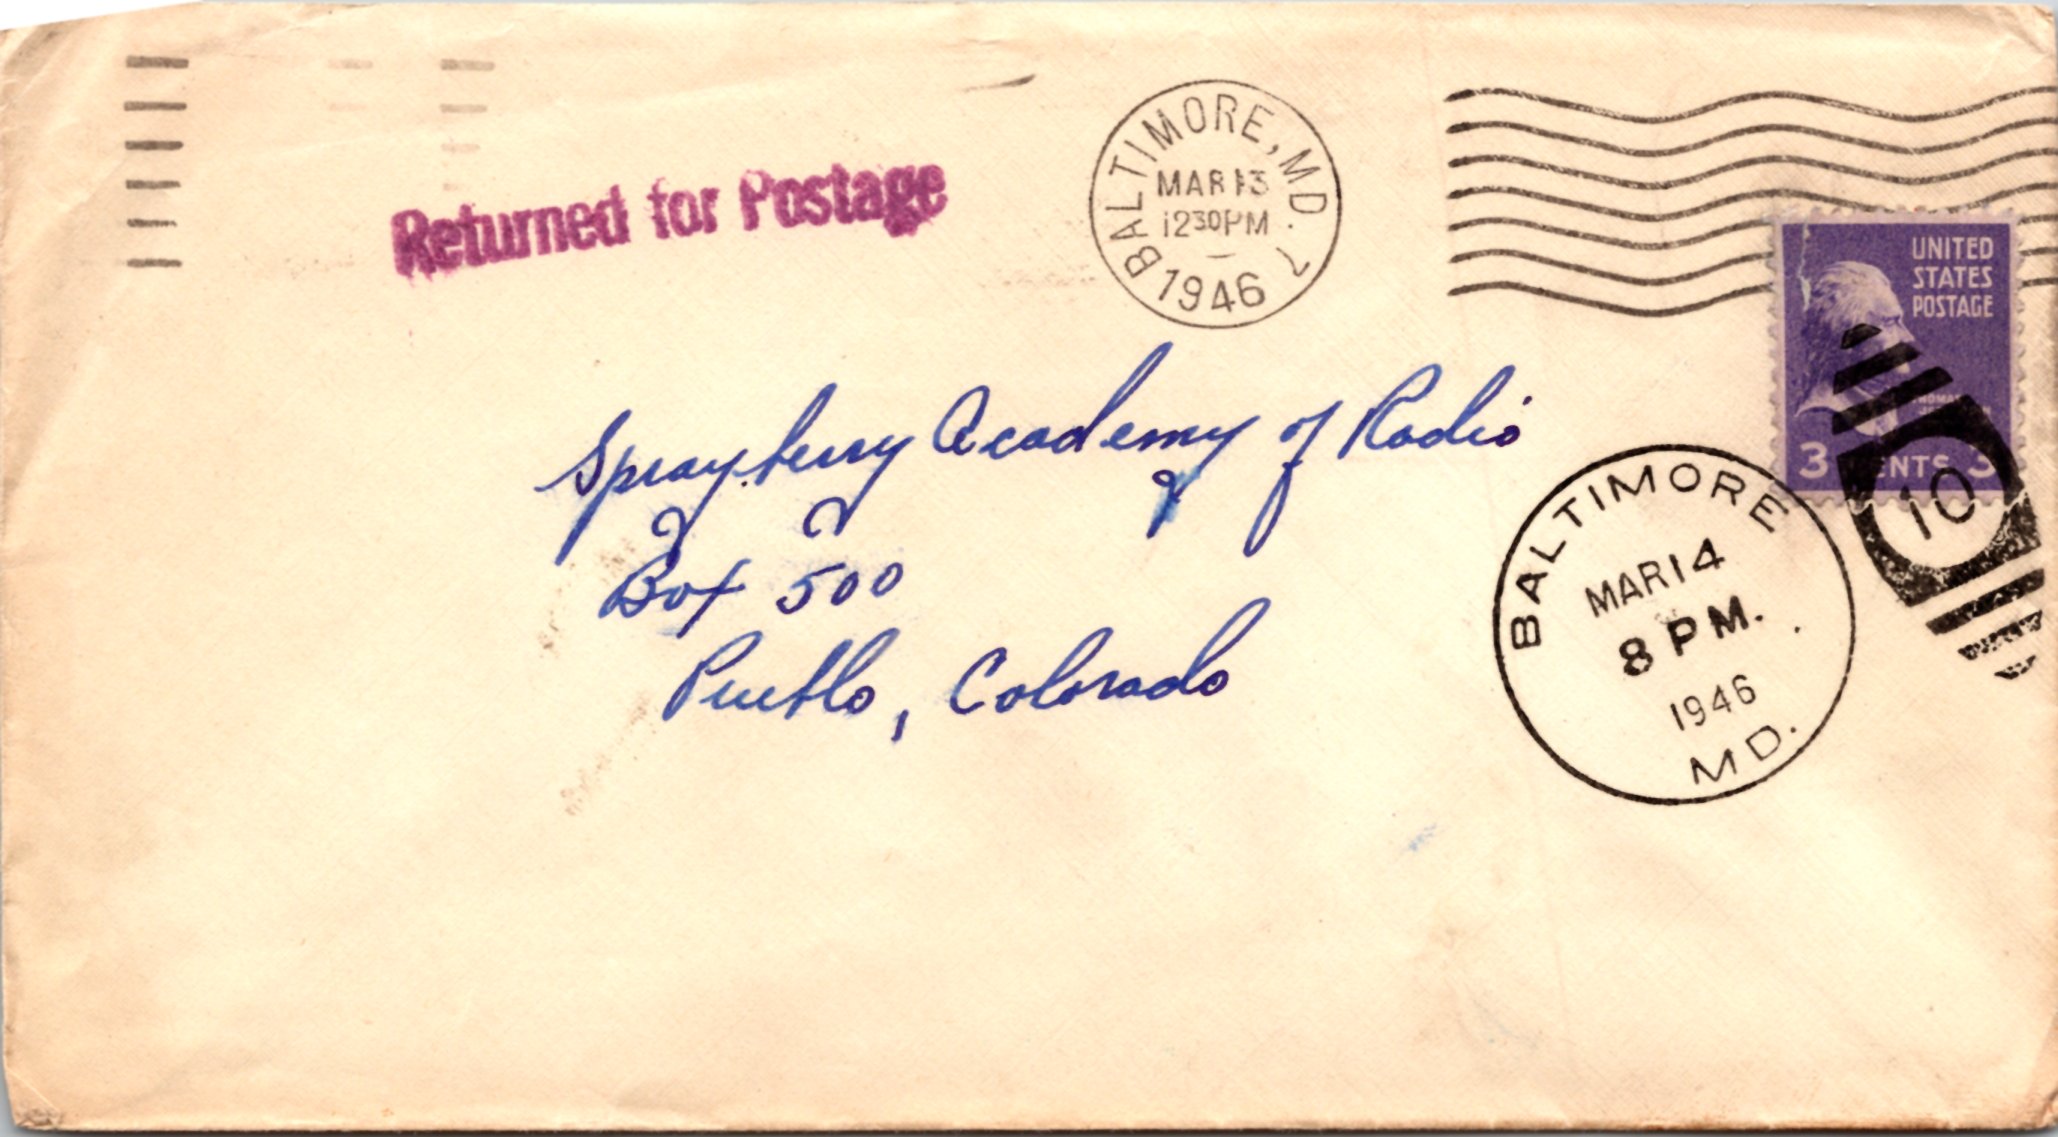 Returned for Postage
BALTIMORE, MD. 7
MAR 13
1230PM
1946
UNITED
STATES
POSTAGE
3 CENTS 3
10
Sprayberry Academy of Radio
Box 500
Pueblo, Colorado
BALTIMORE
MAR 14
8 PM.
1946
MD.